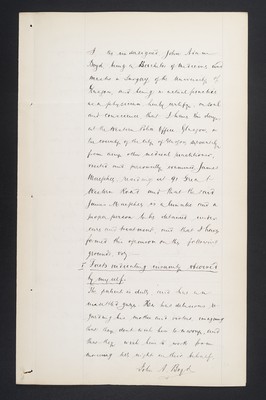 I the undersigned John Adam
Boyd being a Bachelor of Medicine and
Master in Surgery of the University of
Glasgow, and being in actual practice
as a physician hereby certify on soul
and conscience that I have this day
at the Western Police Office Glasgow, in
the county of the City of Glasgow separately
from any other medical practitioner,
visited and personally examined James
Murphy, residing at 91
Western Road and that the said
James Murphy is a lunatic and a
proper person to be detained under
care and treatment, and that I have
formed this opinion on the following
grounds, viz:—
1. Facts indicating insanity observed
by myself:
The patient is dull and has a
gaze. He has delusions
regarding his mother and sisters, imagining
that they want him to and
that they wish him to work from
morning till night on their behalf.
John A. Boyd